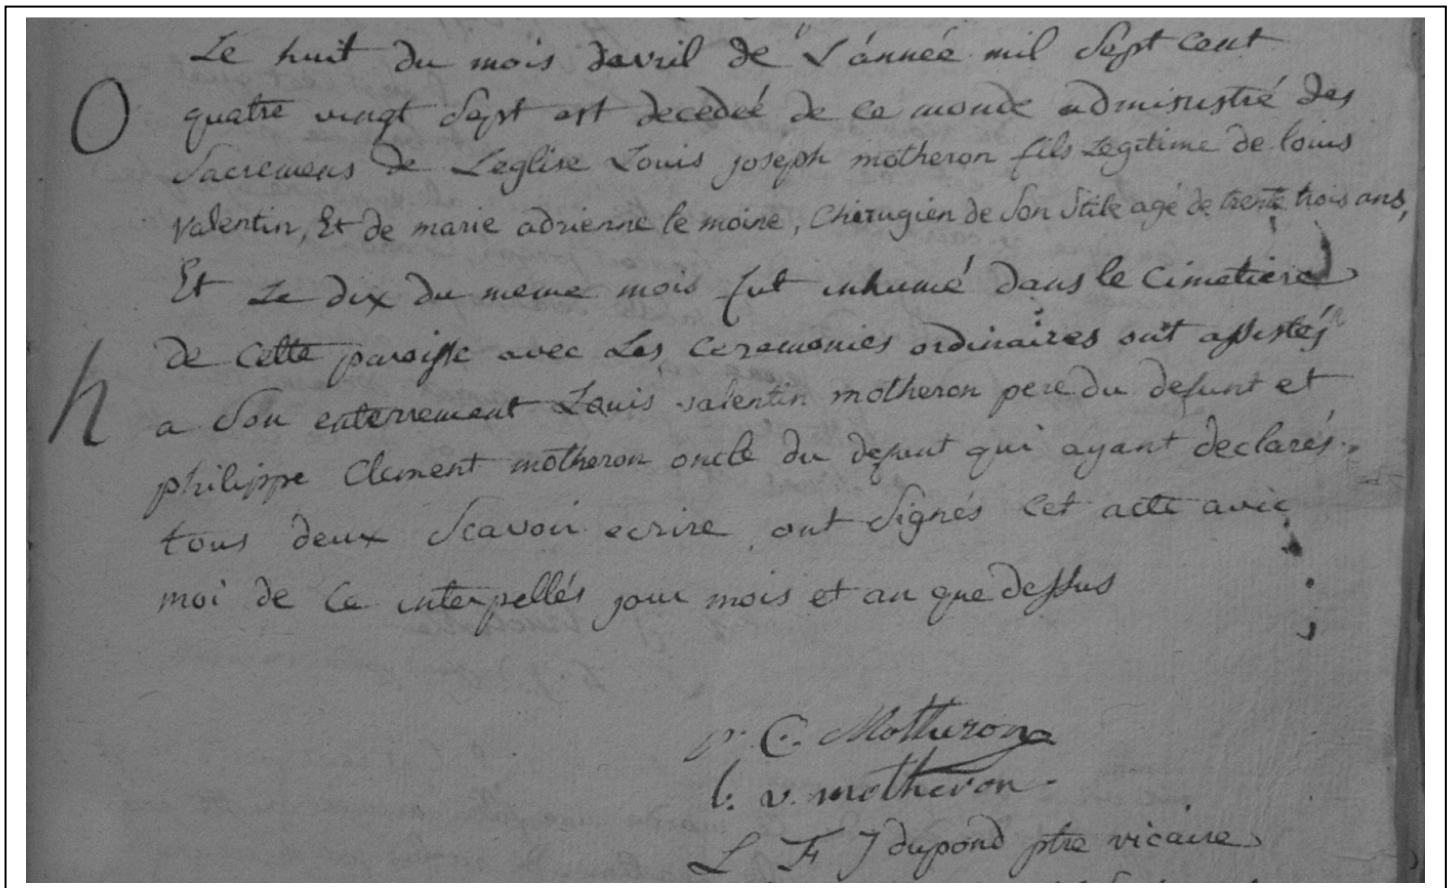 Le huit du mois davril de L'année mil Sept cent
O
quatre vingt Sept est decedeé de ce monde administré des
Sacremens de Leglise Louis joseph motheron fils Legitime de louis
Valentin, Et de marie adrienne le moine, Chirugien de Son Stile agé de trente trois ans,
Et Le dix du meme mois fut inhumé dans le Cimetiere
de Cette paroisse avec Les Ceremonies ordinaires ont assistés
h
a Son enterrement Louis valentin motheron pere du defunt et
philippe Clement motheron oncle du defunt qui ayant declarés
tous deux Scavoir ecrire ont Signés Cet acte avec
moi de Ce interpellés jour mois et an que dessus
p. C. Motheron
l. v. motheron
L F J dupond ptre vicaire